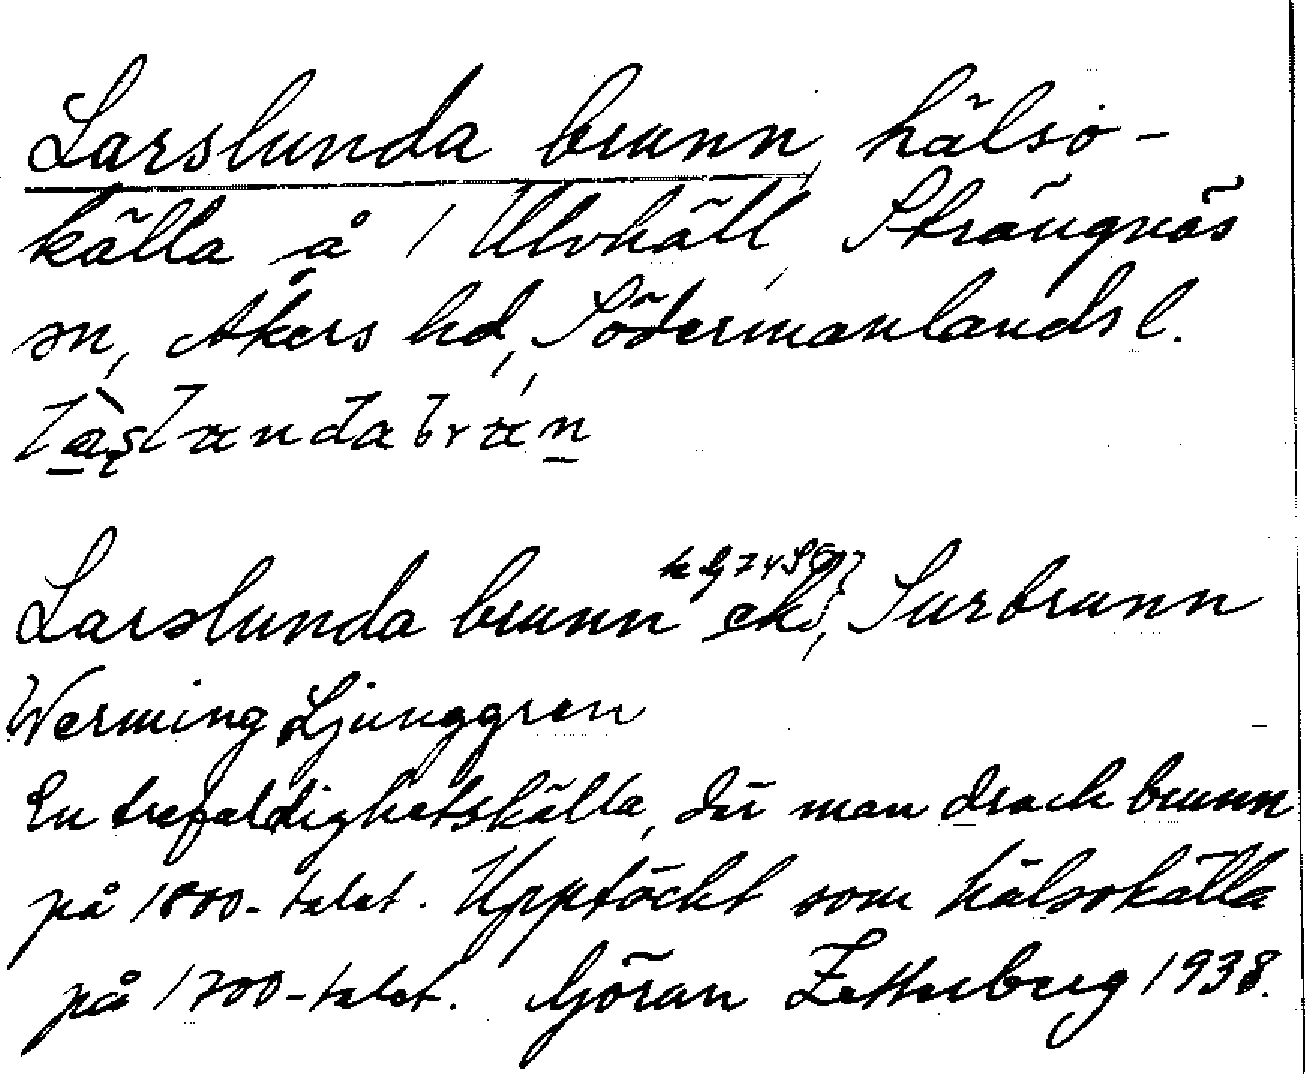 Larslunda brunn, hälso-
källa å 1 Ulvhäll, Strängnäs
sn, Åkers hd, Södermanlands l.
Larslunda brunn ek, Surbrunn
Werming Ljunggren
En trefaldighetskälla, där man drack brunn
på 1800-talet. Upptäckt som hälsokälla
på 1700-talet. Göran Zetterberg 1938.